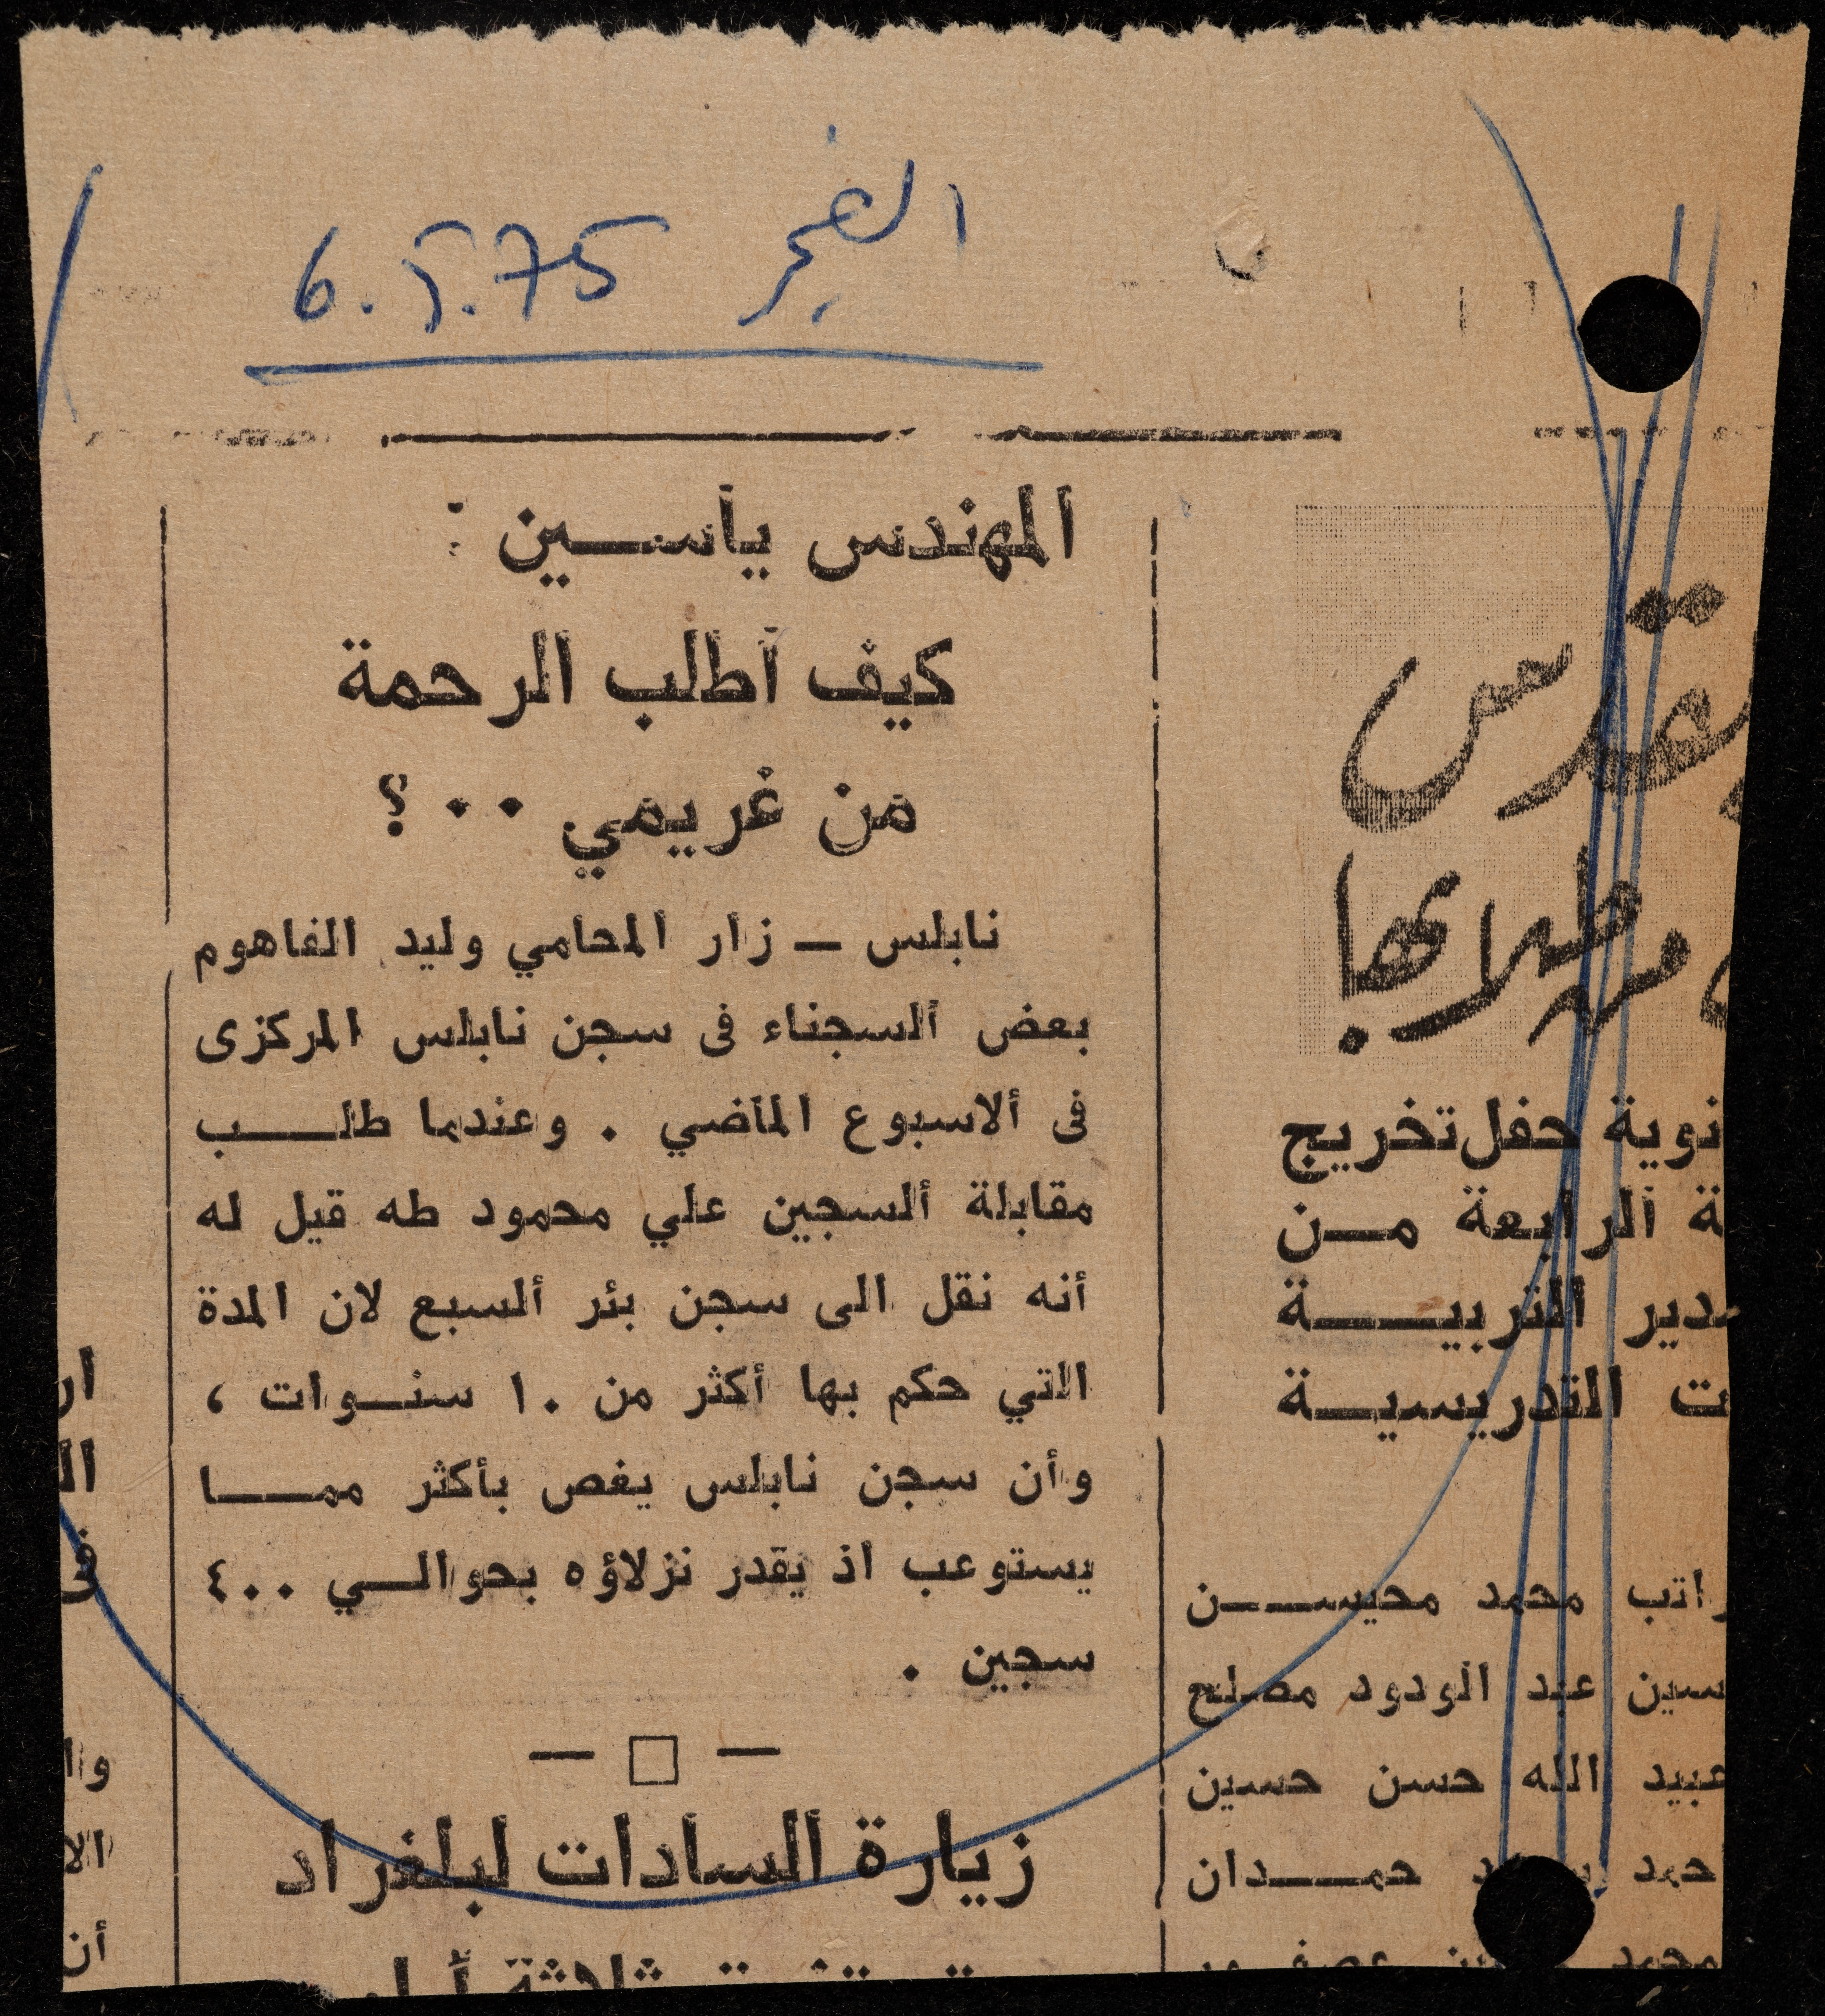 الفجر 6.5.75
المهندس ياسـين :
كيف أطلب الرحمة
من غريمي ٠٠ ؟
نابلس — زار المحامي وليد الفاهوم
بعض السجناء فى سجن نابلس المركزى
فى الاسبوع الماضي . وعندما طلـــب
مقابلة السجين علي محمود طه قيل له
أنه نقل الى سجن بئر السبع لان المدة
التي حكم بها أكثر من ١٠ سنـوات ،
وأن سجن نابلس يغص بأكثر ممــا
يستوعب اذ يقدر نزلاؤه بحوالـي ٤٠٠
سجين .
— □ —
زيارة السادات لبلغراد
نوية حفل تخريج
ة الرابعة مـن
دير التربيـــة
ت التدريسيـة
راتب محمد محيســن
سين عبد الودود مصلح
عبيد الله حسن حسين
حمد حمــدان
محمد
ار
ال
فى
وا
الا
أن